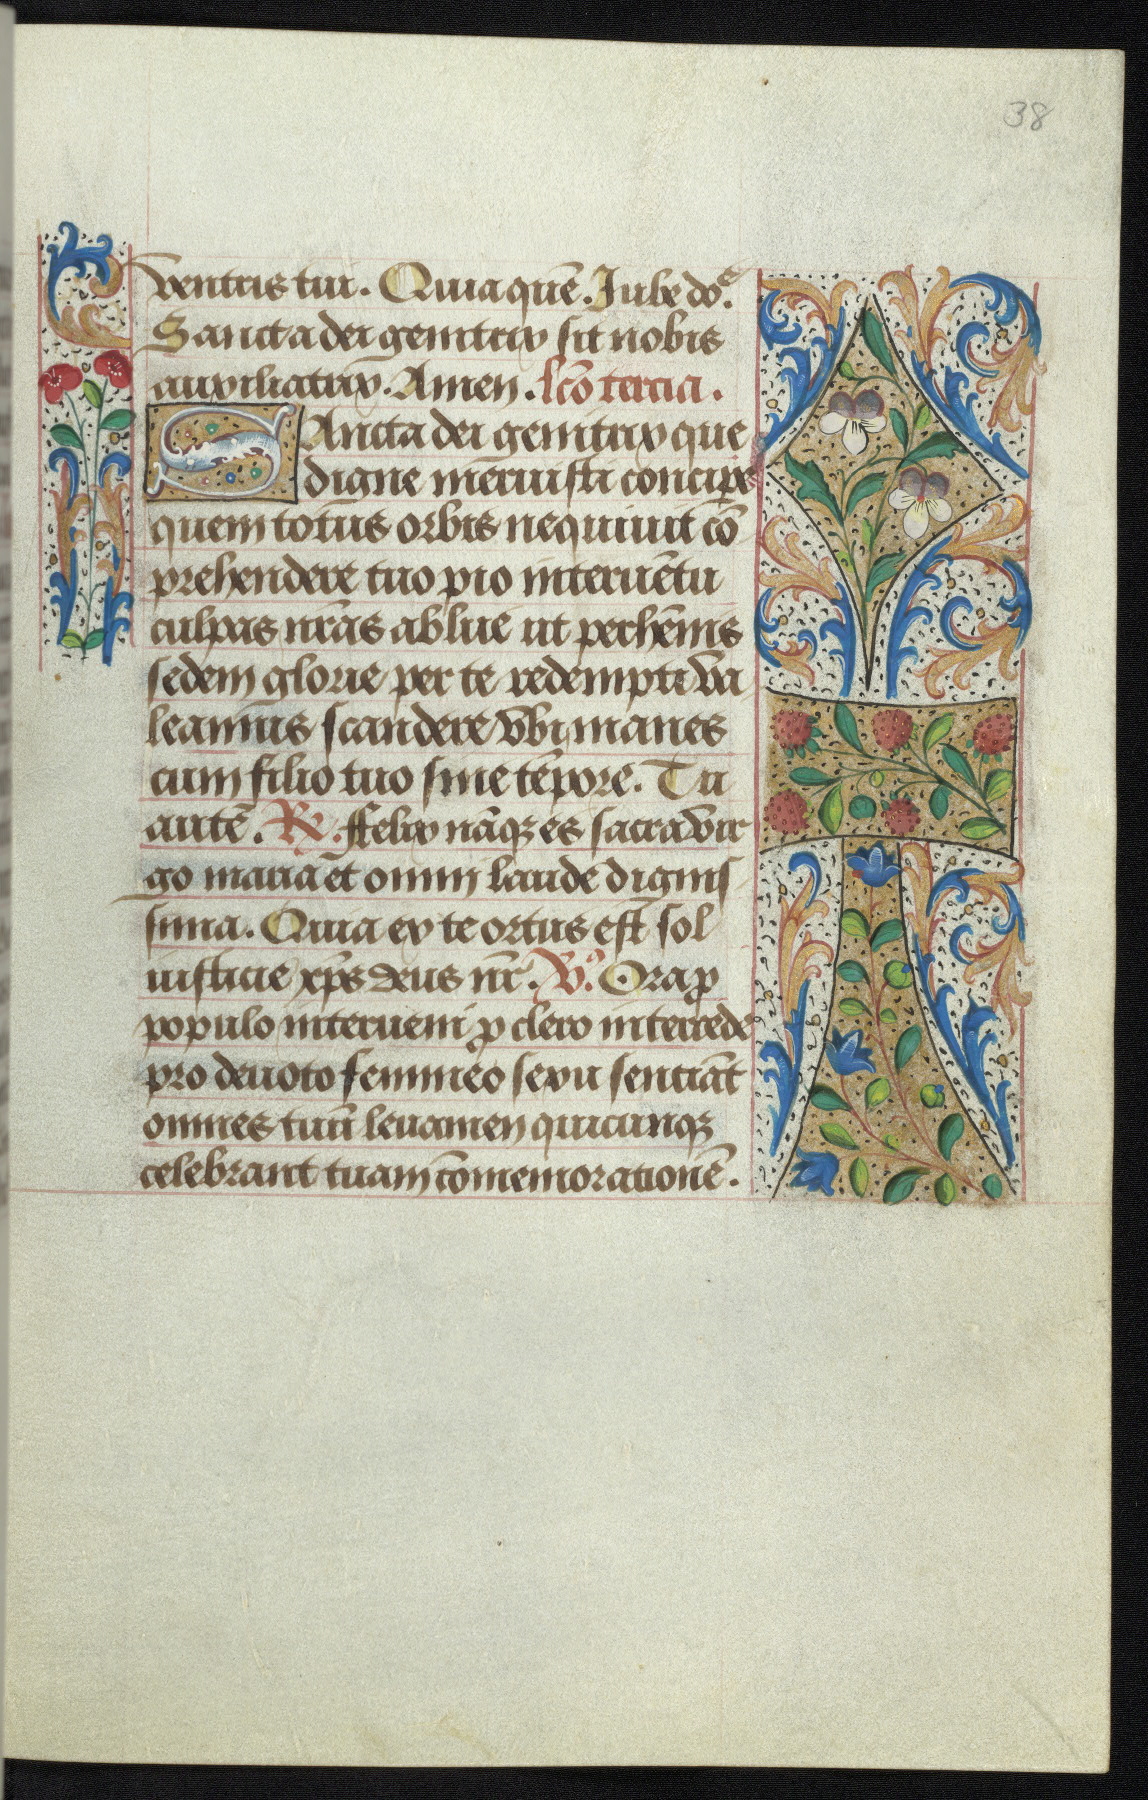 38
ventris tui. Quia quē. Iube dōe.
Sancta dei genitrix sit nobis
auxiliatrix. Amen. lcō tercia.
SAncta dei genitrix que
digne meruisti concipe
quem totus orbis nequiuit cō
prehendere tuo pio interuētu
culpas nr̄as ablue ut perhēnis
sedem glorie per te redempti va
leamus scandere vbi manes
cum filio tuo sine tēpore. Tu
autē. R. ffelix nāqꝫ es sacra vir
go maria et omni laude dignis
sima. Quia ex te ortus est sol
iusticie xp̄s deus nr̄. V. Ora ꝓ
populo interueni ꝓ clero intercede
pro deuoto femineo sexu senciāt
omnes tuū leuamen quicunqꝫ
celebrant tuam cōmemorationē.